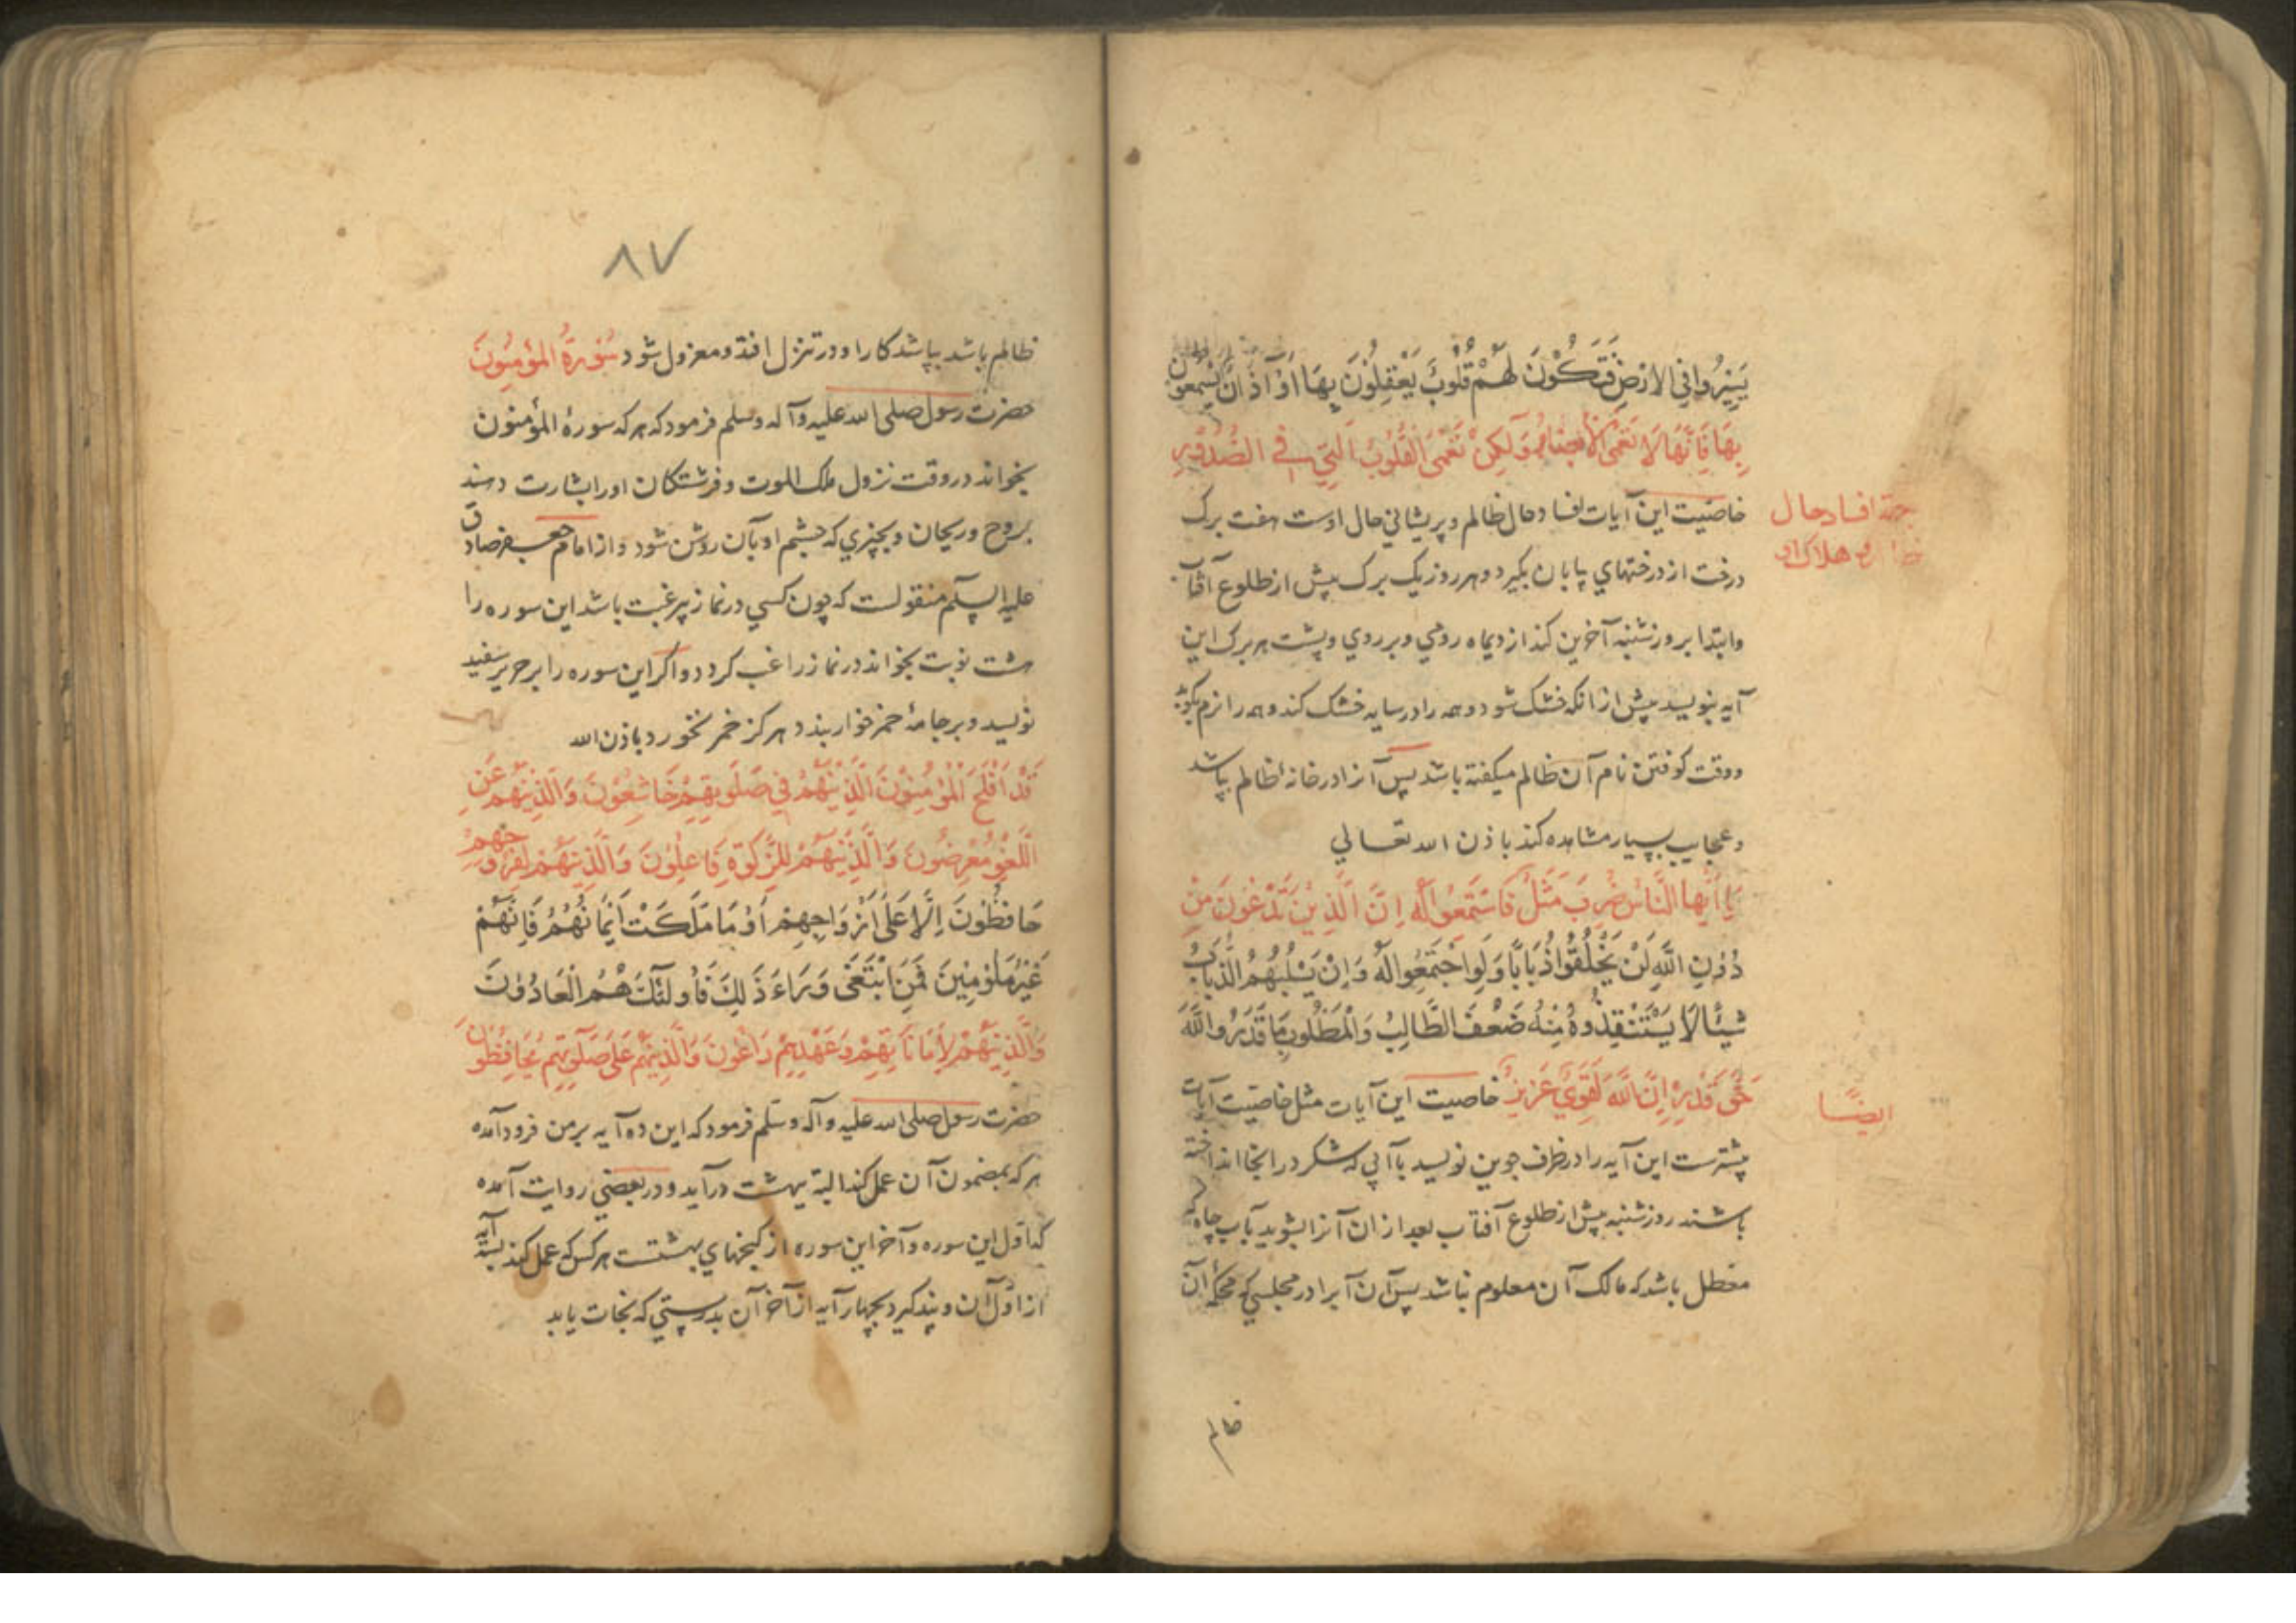 يَسِيرُوا فِي الْاَرْضِ فَتَكُوْنَ لَهُمْ قُلُوبٌ يَعْقِلُوْنَ بِهَا اَوْ اٰذَانٌ يَسْمَعُونَ
بِهَا فَاِنَّهَا لَا تَعْمَى الْاَبْصَارُ وَلٰكِنْ تَعْمَى الْقُلُوْبُ الَّتِي فِي الصُّدُوْرِ
خاصیت این آیات افساد حال ظالم و پریشانی حال اوست هفت برک
جهة افساد حال
و هلاک او
درخت از درختهای بیابان بکیرد و هر روز یک برک پیش از طلوع آفتاب
وابتدا بروز شنبه آخرین کند از دیماه رومی و بر روی و پشت هر برک این
آیه بنویسد پیش از انکه خشک شود و همه را در سایه خشک کند و همه را نرم بکوبد
و وقت کوفتن نام آن ظالم میکفته باشد پس آنرا در خانهٔ ظالم بپاشد
و عجایب بسیار مشاهده کند باذن الله تعالی
يَا اَيُّهَا النَّاسُ ضُرِبَ مَثَلٌ فَاسْتَمِعُوا لَهُ اِنَّ الَّذِينَ تَدْعُوْنَ مِنْ
دُوْنِ اللَّهِ لَنْ يَخْلُقُوْا ذُبَابًا وَلَوِ اجْتَمَعُوا لَهُ وَاِنْ يَسْلُبْهُمُ الذُّبَابُ
شَيْئًا لَا يَسْتَنْقِذُوهُ مِنْهُ ضَعُفَ الطَّالِبُ وَالْمَطْلُوبُ مَا قَدَرُوا اللَّهَ
حَقَّ قَدْرِهِ اِنَّ اللَّهَ لَقَوِيٌّ عَزِيزٌ خاصیت این آیات مثل خاصیت آیات
ایضًا
پیشترست این آیه را در ظرف چوبین نویسد باآبی که شکر در انجا انداخته
باشند روز شنبه پیش از طلوع آفتاب بعد ازان آنرا بشوید بآب چاه که
معطل باشد که مالک آن معلوم نباشد پس آن آبرا در مجلسی که محکمهٔ آن
ظالم
۸۷
ظالم باشد بپاشد کار او در تنزل افتد و معزول شود سُوْرَةُ الْمُؤْمِنُوْنَ
حضرت رسول صلی الله علیه وآله وسلم فرمود که هر که سورهٔ المؤمنون
بخواند در وقت نزول ملک الموت و فرشتکان اورا بشارت دهند
بروح و ریحان و بچیزی که چشم او بآن روشن شود و از امام جعفر صادق
علیه السلام منقولست که چون کسی در نماز پرغبت باشد این سوره را
هشت نوبت بخواند در نماز راغب کردد و اکر این سوره را بر حریر سفید
نویسد و بر جامهٔ خمر خوار بندد هرکز خمر نخورد باذن الله
قَدْ اَفْلَحَ الْمُؤْمِنُوْنَ الَّذِيْنَ هُمْ فِي صَلٰوتِهِمْ خَاشِعُوْنَ وَالَّذِيْنَ هُمْ عَنِ
اللَّغْوِ مُعْرِضُونَ وَالَّذِيْنَ هُمْ لِلزَّكٰوةِ فَاعِلُوْنَ وَالَّذِيْنَ هُمْ لِفُرُوْجِهِمْ
حَافِظُوْنَ اِلَّا عَلٰى اَزْوَاجِهِمْ اَوْ مَا مَلَكَتْ اَيْمَانُهُمْ فَاِنَّهُمْ
غَيْرُ مَلُوْمِيْنَ فَمَنِ ابْتَغٰى وَرَاءَ ذٰلِكَ فَاُولٰئِكَ هُمُ الْعَادُوْنَ
وَالَّذِيْنَ هُمْ لِاَمَانَاتِهِمْ وَعَهْدِهِمْ رَاعُوْنَ وَالَّذِيْنَ هُمْ عَلٰى صَلَوٰتِهِمْ يُحَافِظُوْنَ
حضرت رسول صلی الله علیه وآله وسلم فرمود که این ده آیه بر من فرود آمده
هر که بمضمون آن عمل کند البته ببهشت درآید و در بعضی روایت آمده
که اول این سوره و آخر این سوره از کنجهای بهشتست هر کس که عمل کند بسه آیه
از اول آن و پند کیرد بچهار آیه از آخر آن بدرستی که نجات یابد